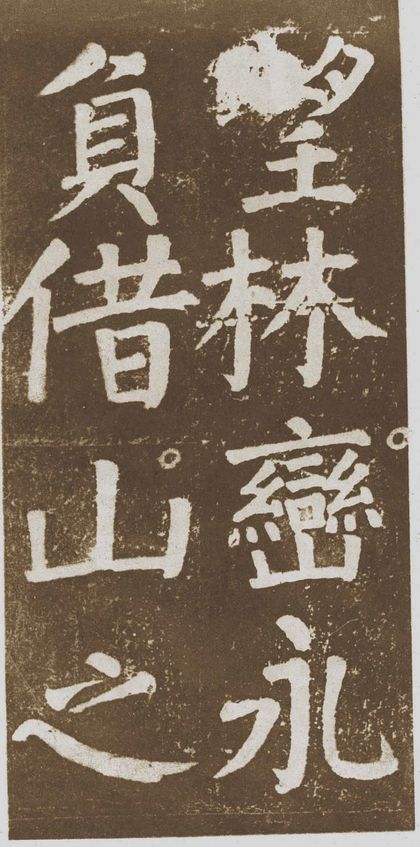 望林巒永
負借山之